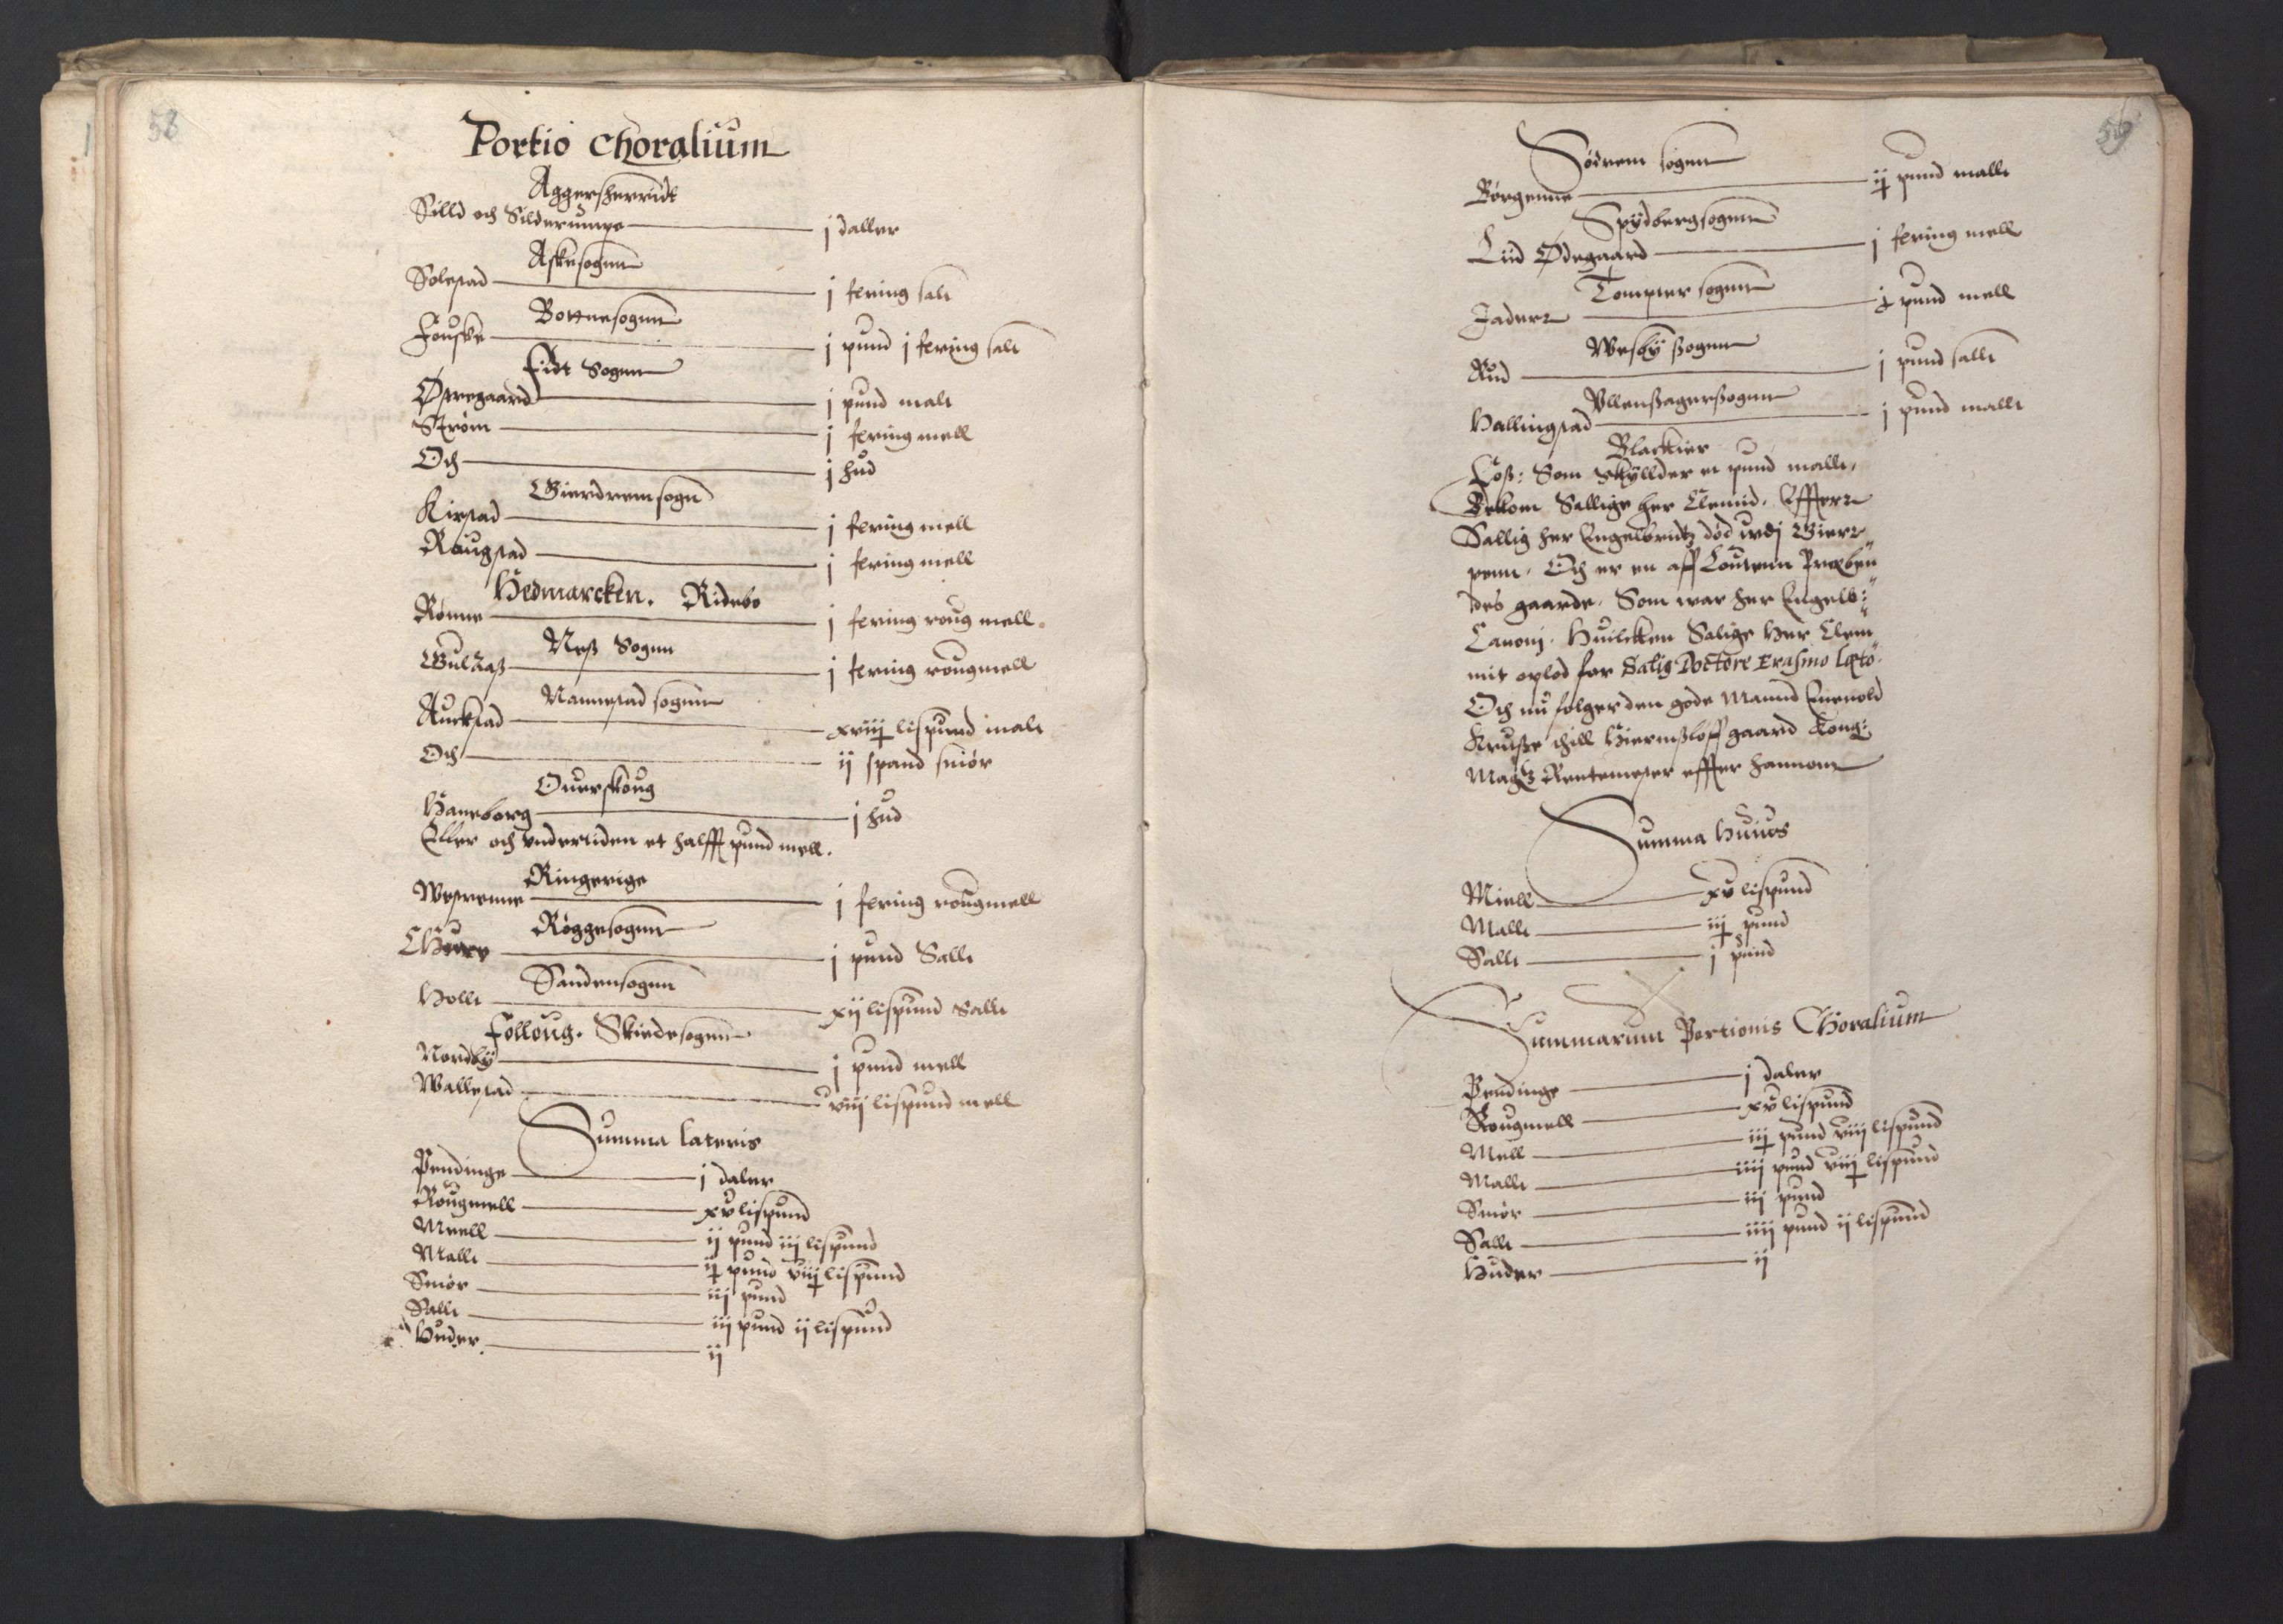 58
Portio Choralium
Aggersherridt
Silld och Silderumpe j daller
Askesognn
Solestad j fering salt
Bottnesognn
Fouske j pund j fering salt
Fidt Sognn
Østregaard j pund malt
Strøm j fering mell
Och j hud
Gierdremsogn
Kirstad j fering mell
Raugstad j fering mell
Hedmarcken. Ridebo
Rønne j fering roug mell.
Neß Sognn
Gulaaß j fering rougmell
Nannestad sognn
Aurstad xviij lispund malt
Och ij spand smør
Ouerskoug
Haneborg j hud
Eller och vndertiden et halfft pund mell.
Ringerige
Westrenne j fering rougmell
Røggesognn
j pund Sallt
Sandensognn
Hollt xij lispund Sallt
Folloug. Skiedesognn
Nordby j pund mell
Wallestad viij lispund mell
Summa lateris
Pendinge j daler
Rougmell xv lispund
Miell ij pund iij lispund
Mallt ij pund viij lispund
Smør iij pund
Sallt iij pund ij lispund
Huder ij
59
Sørem sognn
Børgenne ij pund mallt
Spydbergsognn
Liid Ødegaard j fering mell
Tompter sognn
Jaderr j pund mell
Wesby ßognn
Rud j pund sallt
Vllenßagerßognn
Hallingstad j pund mallt
Blackier
Foß: Som skyllder et pund mallt,
Bekom Sallige her Clemid, Effterr
Sallig her Engelbridtz død wdj Bierr
penn, Och er en aff Loutenn Præben
des gaarde, Som war her Engelb:
Canonj. Huilcken Salige Her Clem
mit oplod for Salig Doctore Erasmo Læto.
Och nu følger den gode Mannd Eneuold
Kruße thill Hiermßløff gaard Kong:
Magtz Rentemester effter hannom
Summa Huius
Miell xv lispund
Mallt iij pund
Sallt j pund
Summarum Portionis Choralium
Pendinge j daler
Rougmell xv lispund
Mell iij pund viij lispund
Mallt iiij pund viij lispund
Smør iij pund
Sallt iiij pund ij lispund
Huder ij